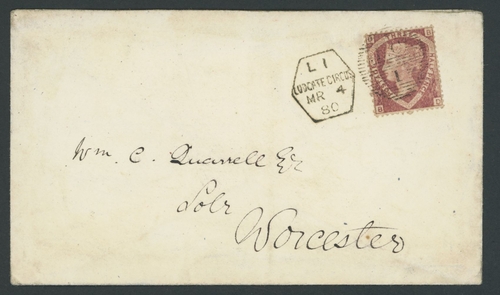 L 1
LUDGATE CIRCUS
MR 4
80
Wm. C. Quarrell Esq
Solr
Worcester